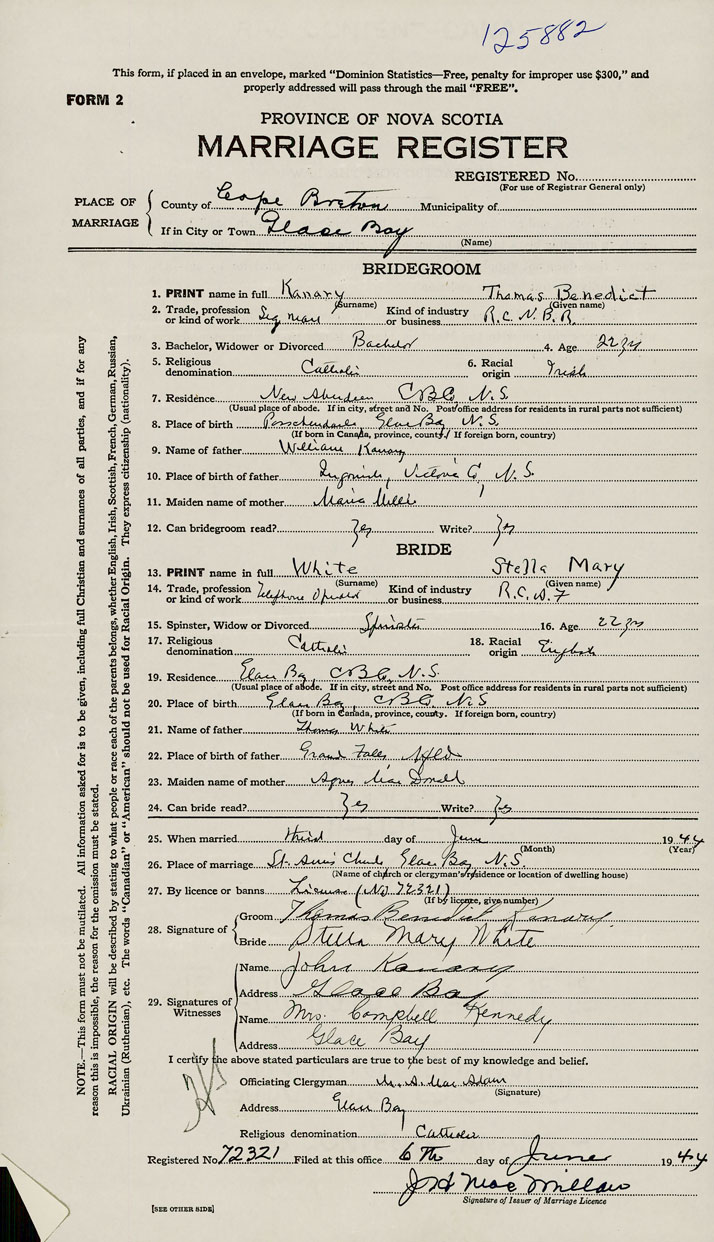 125882
This form, if placed in an envelope, marked "Dominion Statistics—Free, penalty for improper use $300," and
properly addressed will pass through the mail "FREE".
FORM 2
PROVINCE OF NOVA SCOTIA
MARRIAGE REGISTER
REGISTERED No.
(For use of Registrar General only)
PLACE OF MARRIAGE
County of Cape Breton Municipality of
If in City or Town Glace Bay
(Name)
BRIDEGROOM
1. PRINT name in full Kanary Thomas Benedict
(Surname) (Given name)
2. Trade, profession or kind of work Sig man Kind of industry or business R.C.N.V.R.
3. Bachelor, Widower or Divorced Bachelor 4. Age 22 yrs
5. Religious denomination Catholic 6. Racial origin Irish
7. Residence New Aberdeen C B Co, N.S.
(Usual place of abode. If in city, street and No. Post office address for residents in rural parts not sufficient)
8. Place of birth Passchendaele, Glace Bay N.S.
(If born in Canada, province, county. If foreign born, country)
9. Name of father William Kanary
10. Place of birth of father Ingonish, Victoria Co, N.S.
11. Maiden name of mother Maria
12. Can bridegroom read? Yes Write? Yes
BRIDE
13. PRINT name in full White Stella Mary
(Surname) (Given name)
14. Trade, profession or kind of work Telephone Operator Kind of industry or business R.C.A.F
15. Spinster, Widow or Divorced Spinster 16. Age 22 yrs
17. Religious denomination Catholic 18. Racial origin English
19. Residence Glace Bay, C B Co, N.S.
(Usual place of abode. If in city, street and No. Post office address for residents in rural parts not sufficient)
20. Place of birth Glace Bay, C B Co, N.S
(If born in Canada, province, county. If foreign born, country)
21. Name of father Thomas White
22. Place of birth of father Grand Falls Nfld
23. Maiden name of mother Agnes MacDonald
24. Can bride read? Yes Write? Yes
25. When married third day of June 1944
(Month) (Year)
26. Place of marriage St. Ann's Church Glace Bay N.S.
(Name of church or clergyman's residence or location of dwelling house)
27. By licence or banns License (No 72321)
(If by licence, give number)
28. Signature of
Groom Thomas Benedict Kanary
Bride Stella Mary White
29. Signatures of Witnesses
Name John Kanary
Address Glace Bay
Name Mrs. Campbell Kennedy
Address Glace Bay
I certify the above stated particulars are true to the best of my knowledge and belief.
Officiating Clergyman MacAdam
(Signature)
Address Glace Bay
Religious denomination Catholic
Registered No. 72321 Filed at this office 6 Th day of June 1944
J H MacMillan
Signature of Issuer of Marriage Licence
[SEE OTHER SIDE]
NOTE.—This form must not be mutilated. All information asked for is to be given, including full Christian and surnames of all parties, and if for any
reason this is impossible, the reason for the omission must be stated.
RACIAL ORIGIN will be described by stating to what people or race each of the parents belongs, whether English, Irish, Scottish, French, German, Russian,
Ukrainian (Ruthenian), etc. The words "Canadian" or "American" should not be used for Racial Origin. They express citizenship (nationality).